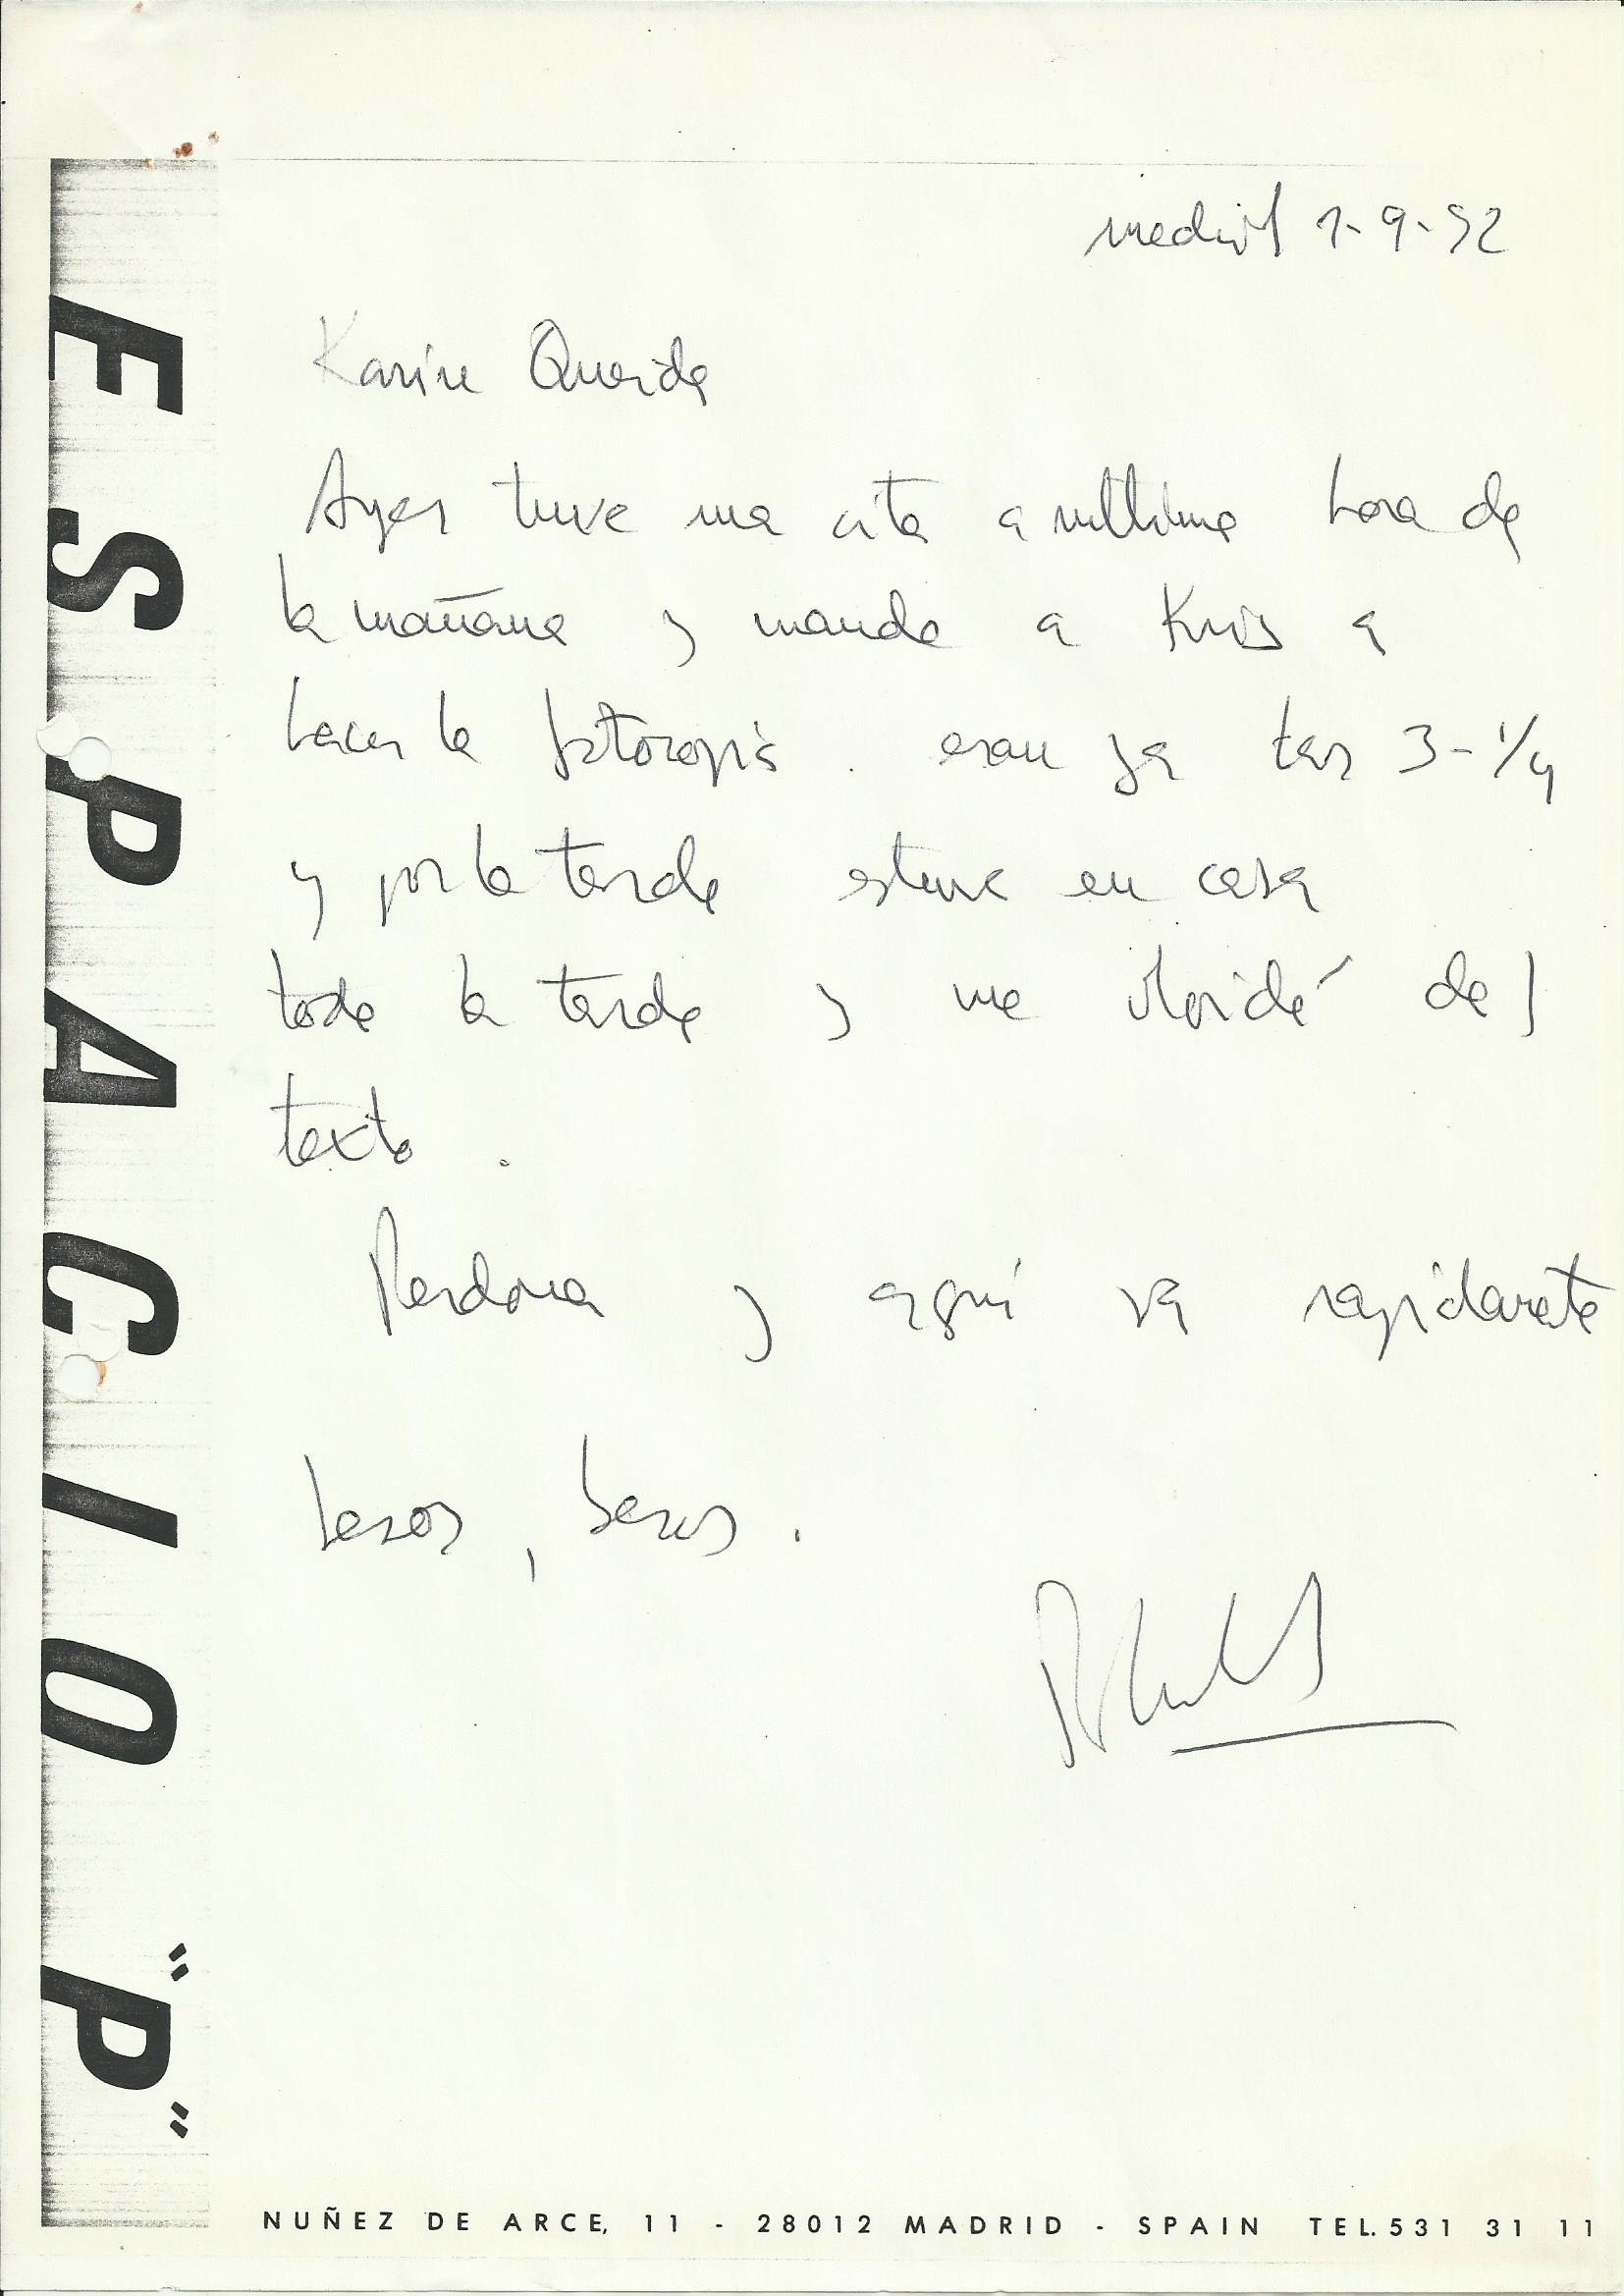 ESPACIO "P"
Madrid 1-9-92
Karin Querida
Ayer tuve una cita a ulltima hora de
la mañana y mande a Kris a
hacer la fotocopia. eran ya las 3-1/4
y por la tarde estuve en casa
toda la tarde y me olvidé del
texto.
Perdona y aquí va rapidamente
besos, besos.
NUÑEZ DE ARCE, 11 - 28012 MADRID - SPAIN TEL. 531 31 11